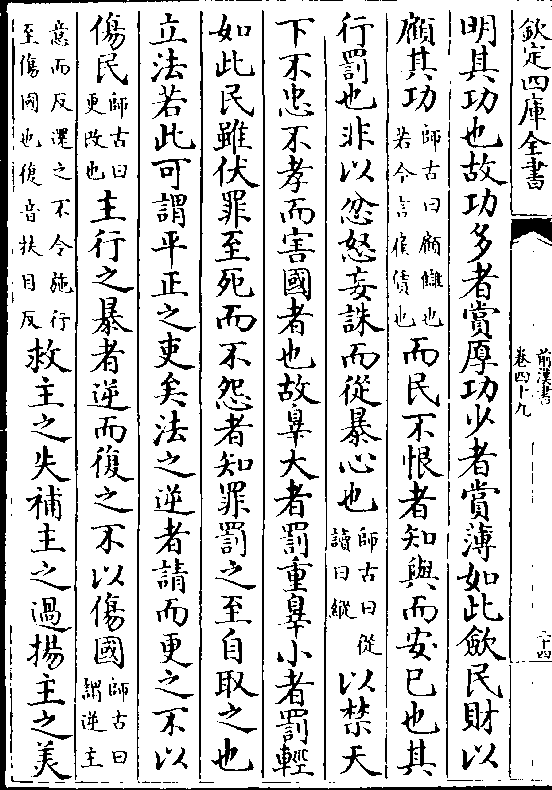 欽定四庫全書
前漢書
卷四十九
二十四
明其功也故功多者賞厚功少者賞薄如此斂民財以
顧其功師古曰顧讎也若今言雇債也而民不恨者知與而安已也其
行罰也非以忿怒妄誅而從暴心也師古曰從讀曰縱以禁天
下不忠不孝而害國者也故辠大者罰重辠小者罰輕
如此民雖伏罪至死而不怨者知罪罰之至自取之也
立法若此可謂平正之吏矣法之逆者請而更之不以
傷民師古曰更改也主行之暴者逆而復之不以傷國師古曰謂逆主
意而反還之不令施行至傷國也復音扶目反救主之失補主之過揚主之美